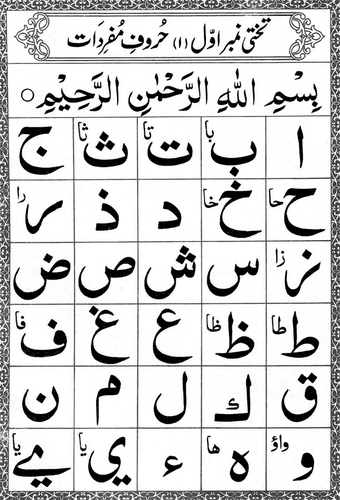 تختی نمبر اوّل (۱) حُروفِ مُفرَدَات
بِسْمِ اللهِ الرَّحْمٰنِ الرَّحِيْمِ ○
ا ب با ت تا ث ثا ج
ح حا خ خا د ذ ر را
ز زا س ش ص ض
ط طا ظ ظا ع غ ف فا
ق ك ل م ن
و واؤ ه ها ء ي يا ے يا